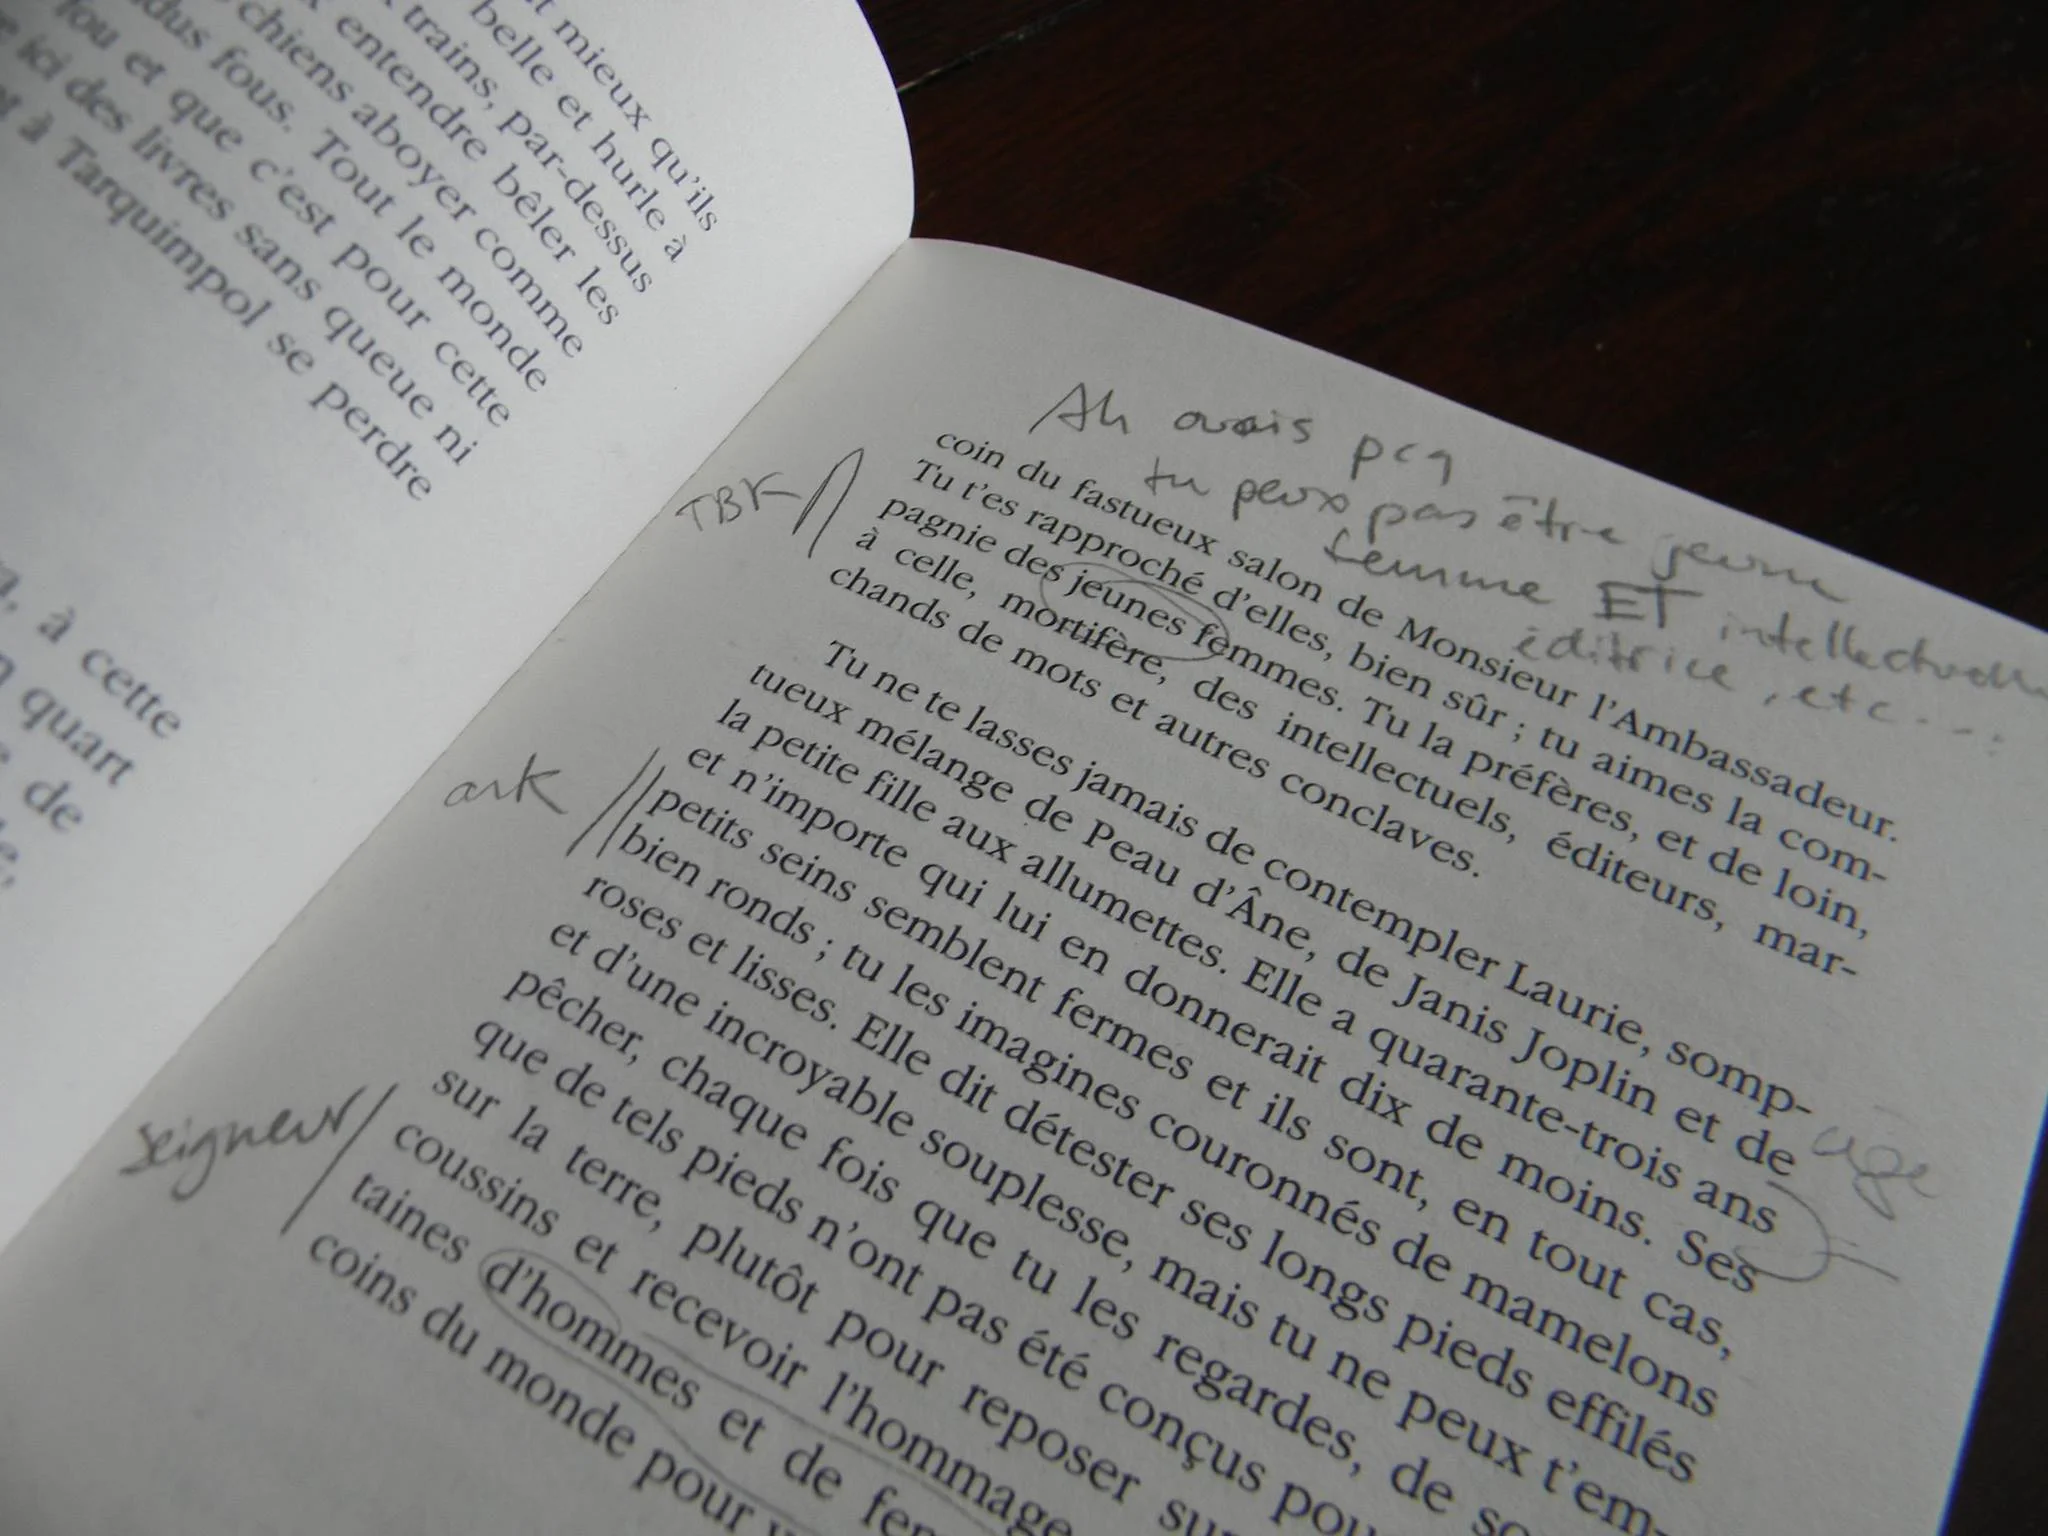 t mieux qu'ils
belle et hurle à
trains, par-dessus
entendre bêler les
chiens aboyer comme
dus fous. Tout le monde
fou et que c'est pour cette
ici des livres sans queue ni
à Tarquimpol se perdre
à cette
quart
de
Ah ouais pcq
tu peux pas être jeune
femme ET intellectuelle
éditrice, etc...
TBK
coin du fastueux salon de Monsieur l'Ambassadeur.
Tu t'es rapproché d'elles, bien sûr ; tu aimes la com-
pagnie des jeunes femmes. Tu la préfères, et de loin,
à celle, mortifère, des intellectuels, éditeurs, mar-
chands de mots et autres conclaves.
Tu ne te lasses jamais de contempler Laurie, somp-
tueux mélange de Peau d'Âne, de Janis Joplin et de
la petite fille aux allumettes. Elle a quarante-trois ans
âge
et n'importe qui lui en donnerait dix de moins. Ses
petits seins semblent fermes et ils sont, en tout cas,
ark
bien ronds ; tu les imagines couronnés de mamelons
roses et lisses. Elle dit détester ses longs pieds effilés
et d'une incroyable souplesse, mais tu ne peux t'em-
pêcher, chaque fois que tu les regardes, de so
que de tels pieds n'ont pas été conçus pou
sur la terre, plutôt pour reposer su
coussins et recevoir l'hommage
seigneur
taines d'hommes et de fem
coins du monde pour